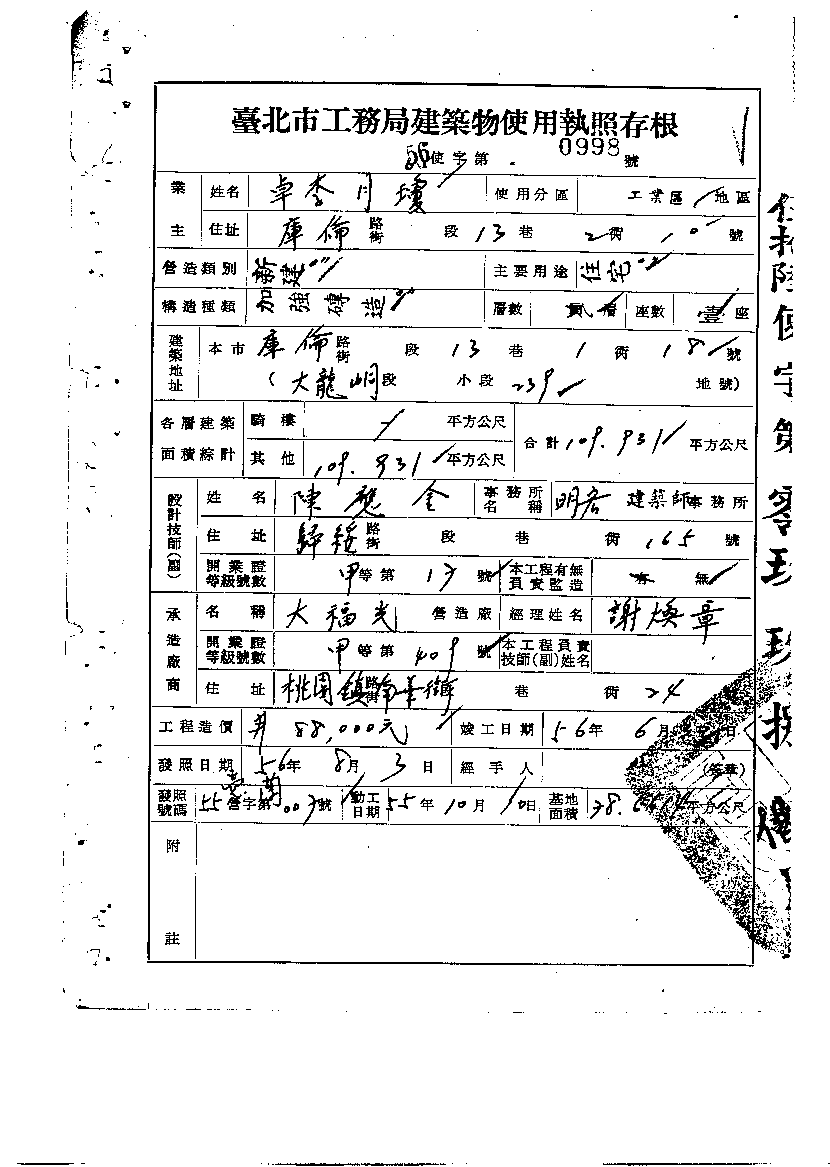 臺北市工務局建築物使用執照存根
56使字第 0998 號
業主 姓名 卓李月瓊 使用分區 工業區 地區
住址 庫倫 路街 段 13 巷 2 衖 號
營造類別 新建 主要用途 住宅
構造種類 加強磚造 層數 貳層 座數 壹座
建築地址 本市 庫倫 路街 段 13 巷 1 衖 18 號
(大龍峒段 小段 239 地號)
各層建築面積綜計 騎樓 平方公尺 合計 109.931 平方公尺
其他 109.931 平方公尺
設計技師(副) 姓名 陳應全 事務所名稱 明宏 建築師事務所
住址 歸綏 路街 段 巷 衖 165 號
開業證等級號數 甲等第 17 號 本工程有無負責監造 有 無
承造廠商 名稱 大福光 營造廠 經理姓名 謝煥章
開業證等級號數 甲等第 409 號 本工程負責技師(副)姓名
住址 桃園鎮 路街 巷 衖 24
工程造價 88,000元 竣工日期 56年 6月 日
發照日期 56年 8月 3日 經手人 (簽章)
發照號碼 55 營字第 003號 動工日期 55年 10月 10日 基地面積 平方公尺
附註
伍拾陸使字第零玖玖捌